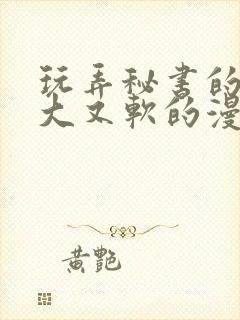 玩弄秘书的
大又软的漫
黄艷